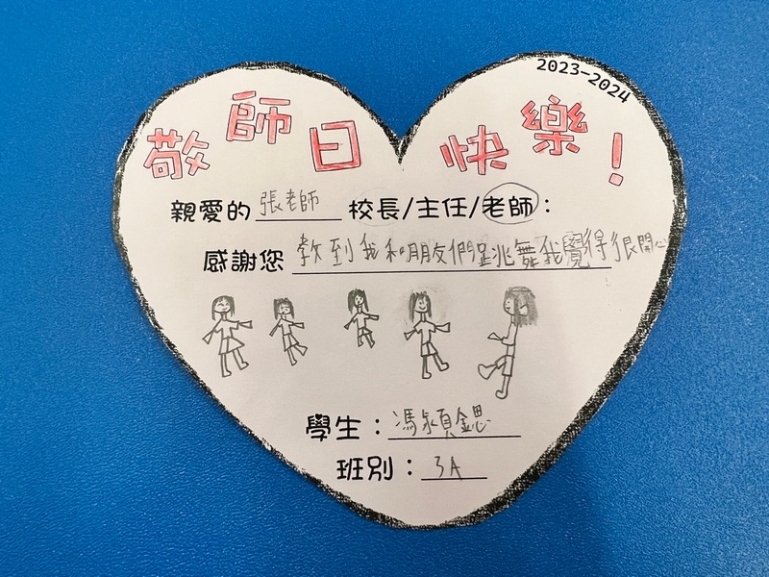 2023-2024
敬師日 快樂！
親愛的 張老師 校長/主任/老師：
感謝您 教到我和朋友們跳舞我覺得很開心
學生：馮穎鍶
班別：3A